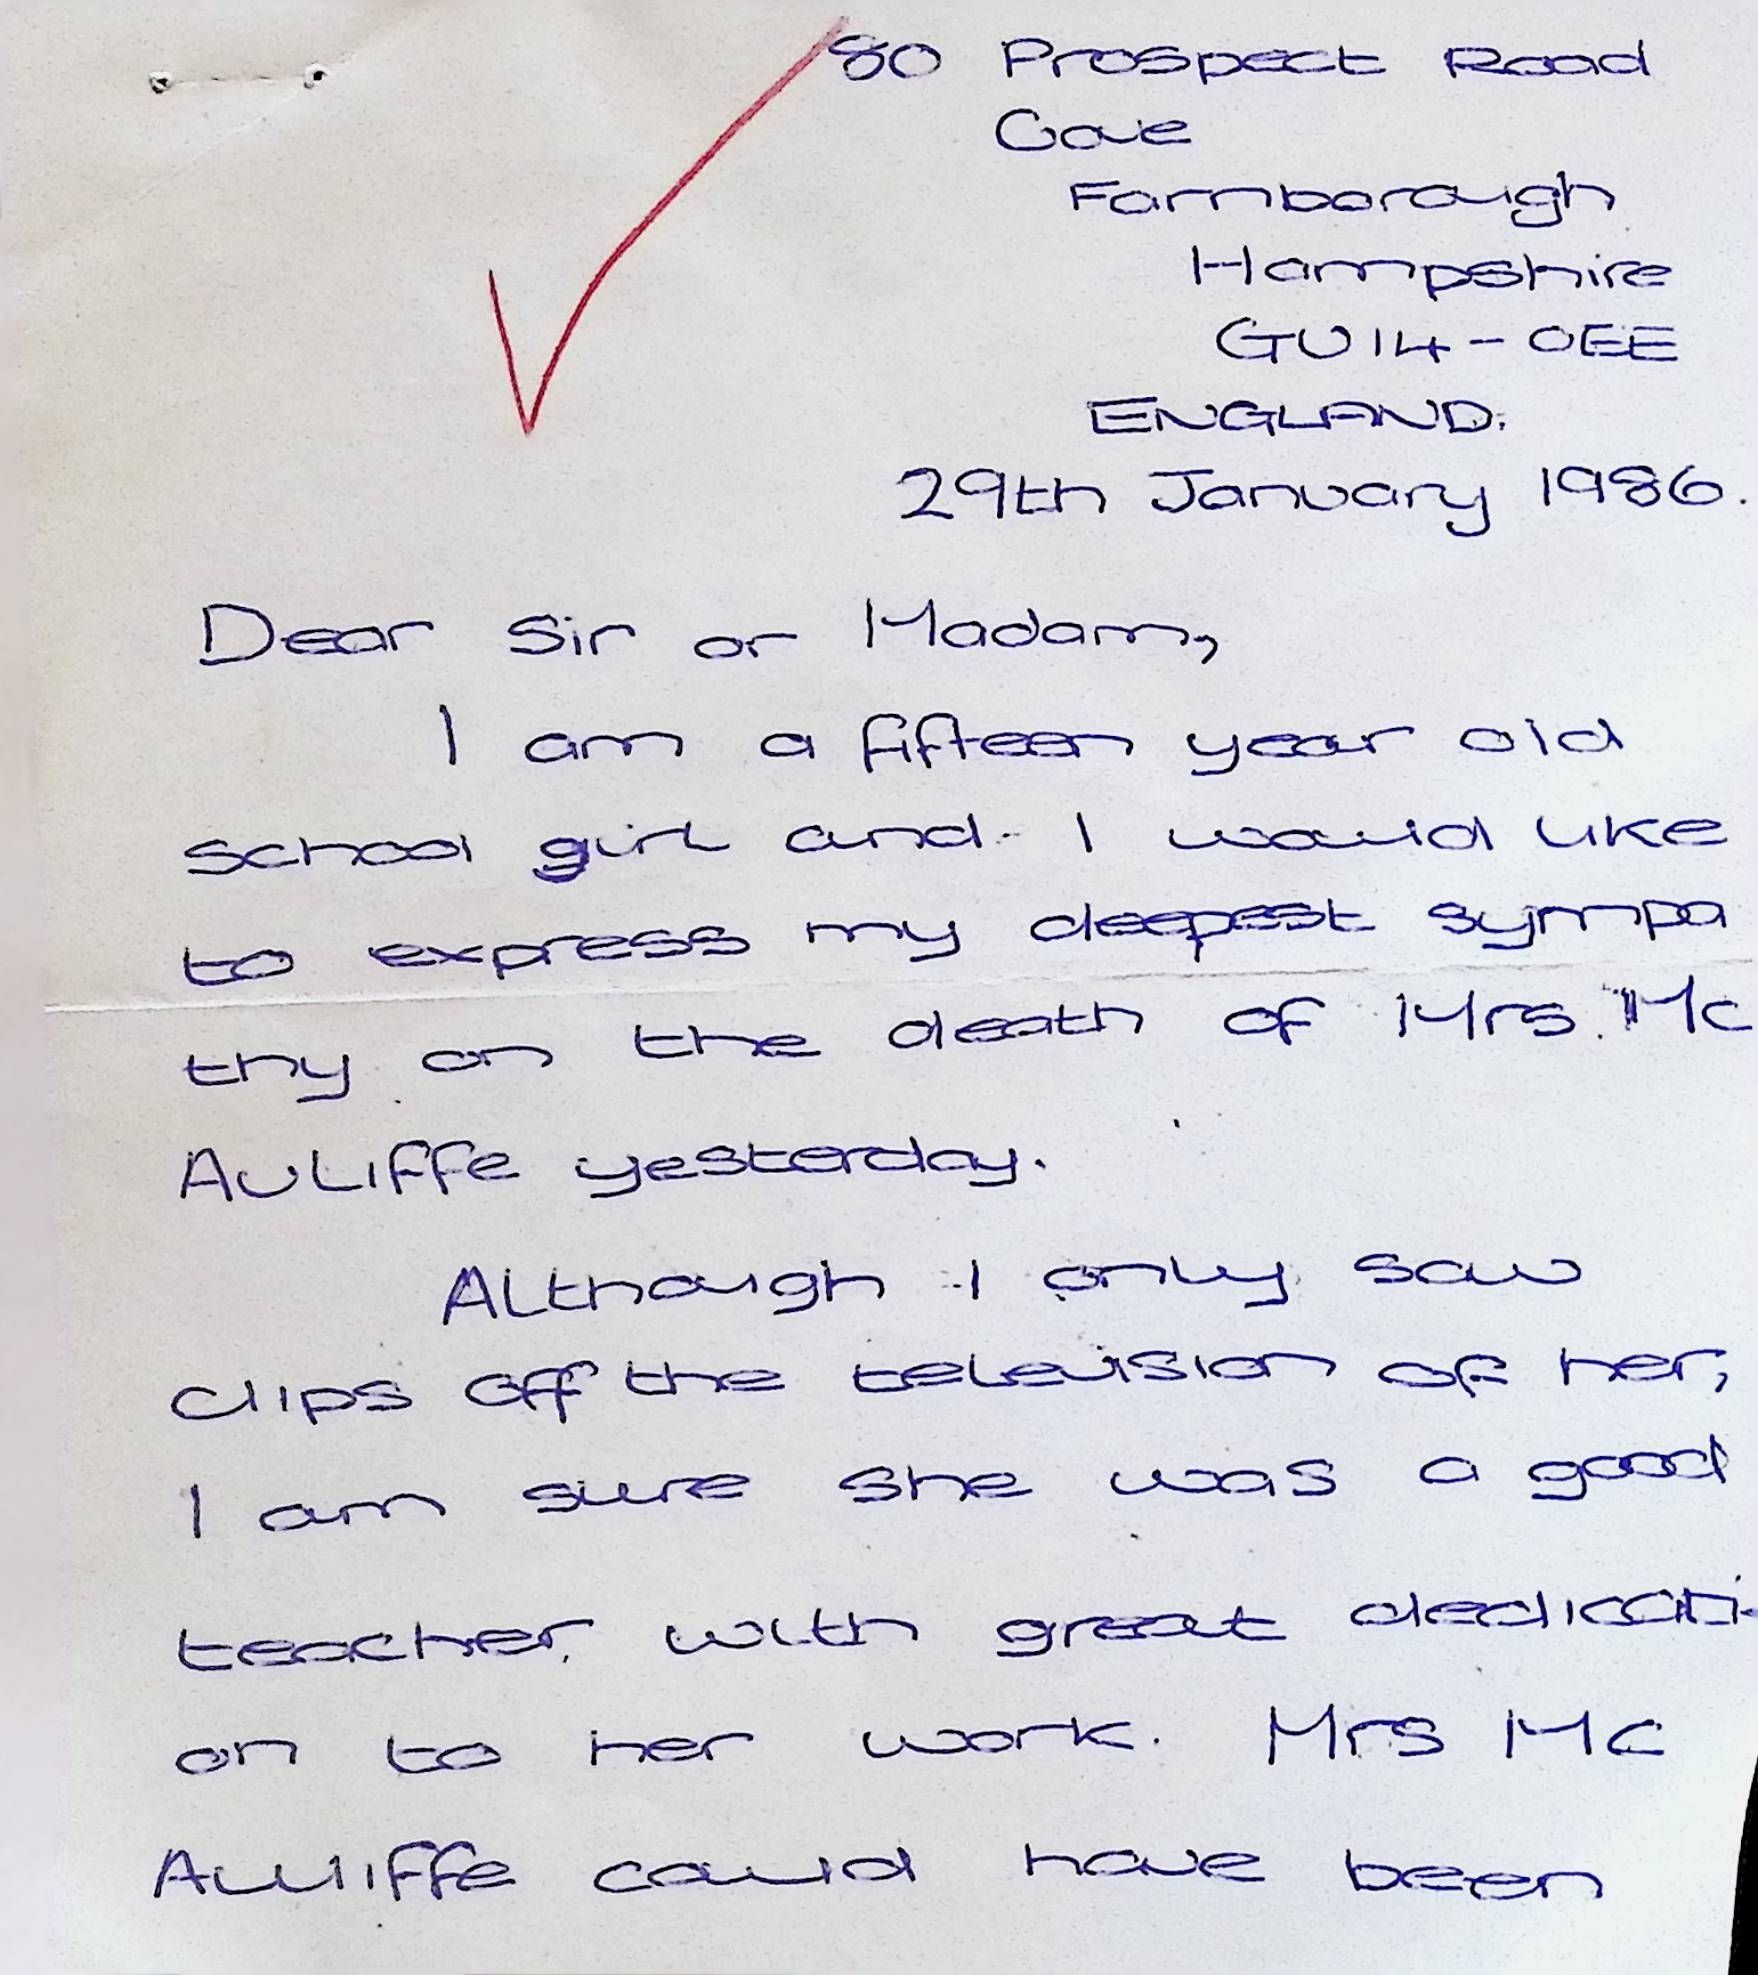 80 Prospect Road
Cove
Farnborough
Hampshire
GU14-0EE
ENGLAND.
29th January 1986.
Dear Sir or Madam,
I am a fifteen year old
school girl and I would like
to express my deepest sympa
thy on the death of Mrs Mc
Auliffe yesterday.
Although I only saw
clips off the television of her,
I am sure she was a good
teacher, with great dedicati-
on to her work. Mrs Mc
Auliffe could have been